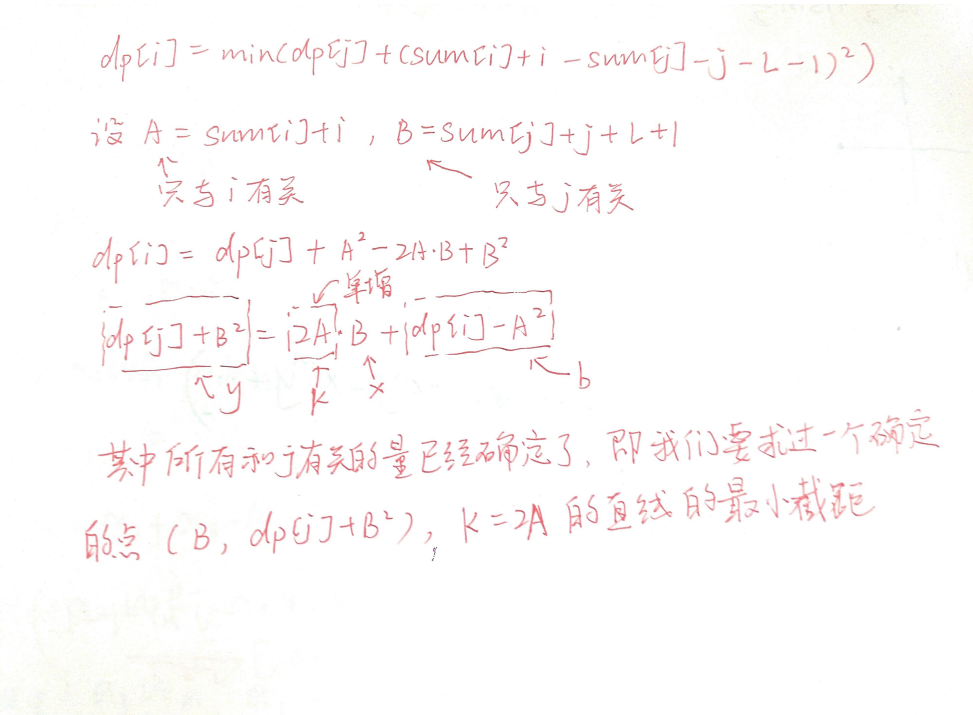 dp[i] = min(dp[j] + (sum[i] + i - sum[j] - j - L - 1)²)
设 A = sum[i]+i , B = sum[j]+j+L+1
只与i有关 只与j有关
dp[i] = dp[j] + A² - 2A·B + B²
单增
dp[j]+B² = 2A·B + dp[i]-A²
y k x b
其中所有和j有关的量已经确定了，即我们要求过一个确定
的点 (B, dp[j]+B²), K=2A 的直线的最小截距